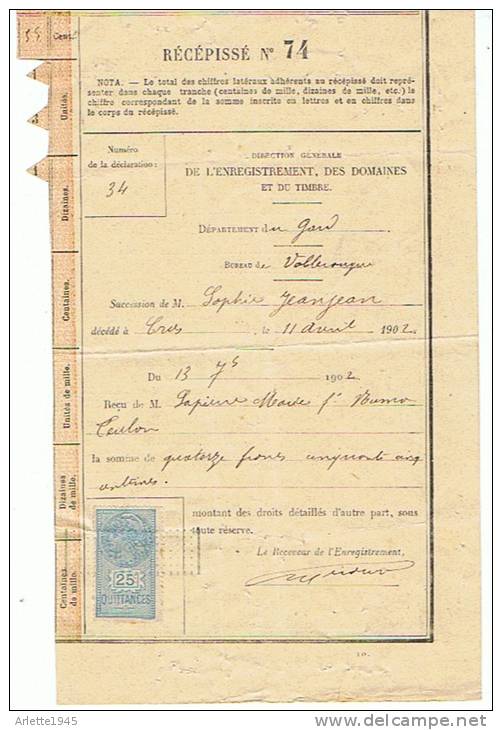 55 Cent.
RÉCÉPISSÉ N° 74
NOTA. — Le total des chiffres latéraux adhérents au récépissé doit repré-
senter dans chaque tranche (centaines de mille, dizaines de mille, etc.) le
chiffre correspondant de la somme inscrite en lettres et en chiffres dans
le corps du récépissé.
Unités.
Dizaines.
Centaines.
Unités de mille.
Dizaines
de mille.
Centaines
de mille.
Numéro
de la déclaration :
34
DIRECTION GÉNÉRALE
DE L'ENREGISTREMENT, DES DOMAINES
ET DU TIMBRE.
DÉPARTEMENT du Gard
BUREAU de Valleraugue
Succession de M. Sophie Jeanjean
décédé à Cros, le 11 avril 1902.
Du 13 7b 1902
Reçu de M. Lapierre Marie f° Numa
Teulon
la somme de quatorze francs cinquante cinq
centimes.
montant des droits détaillés d'autre part, sous
toute réserve.
Le Receveur de l'Enregistrement,
25
QUITTANCES
10.
Arlette1945
delcampe.net